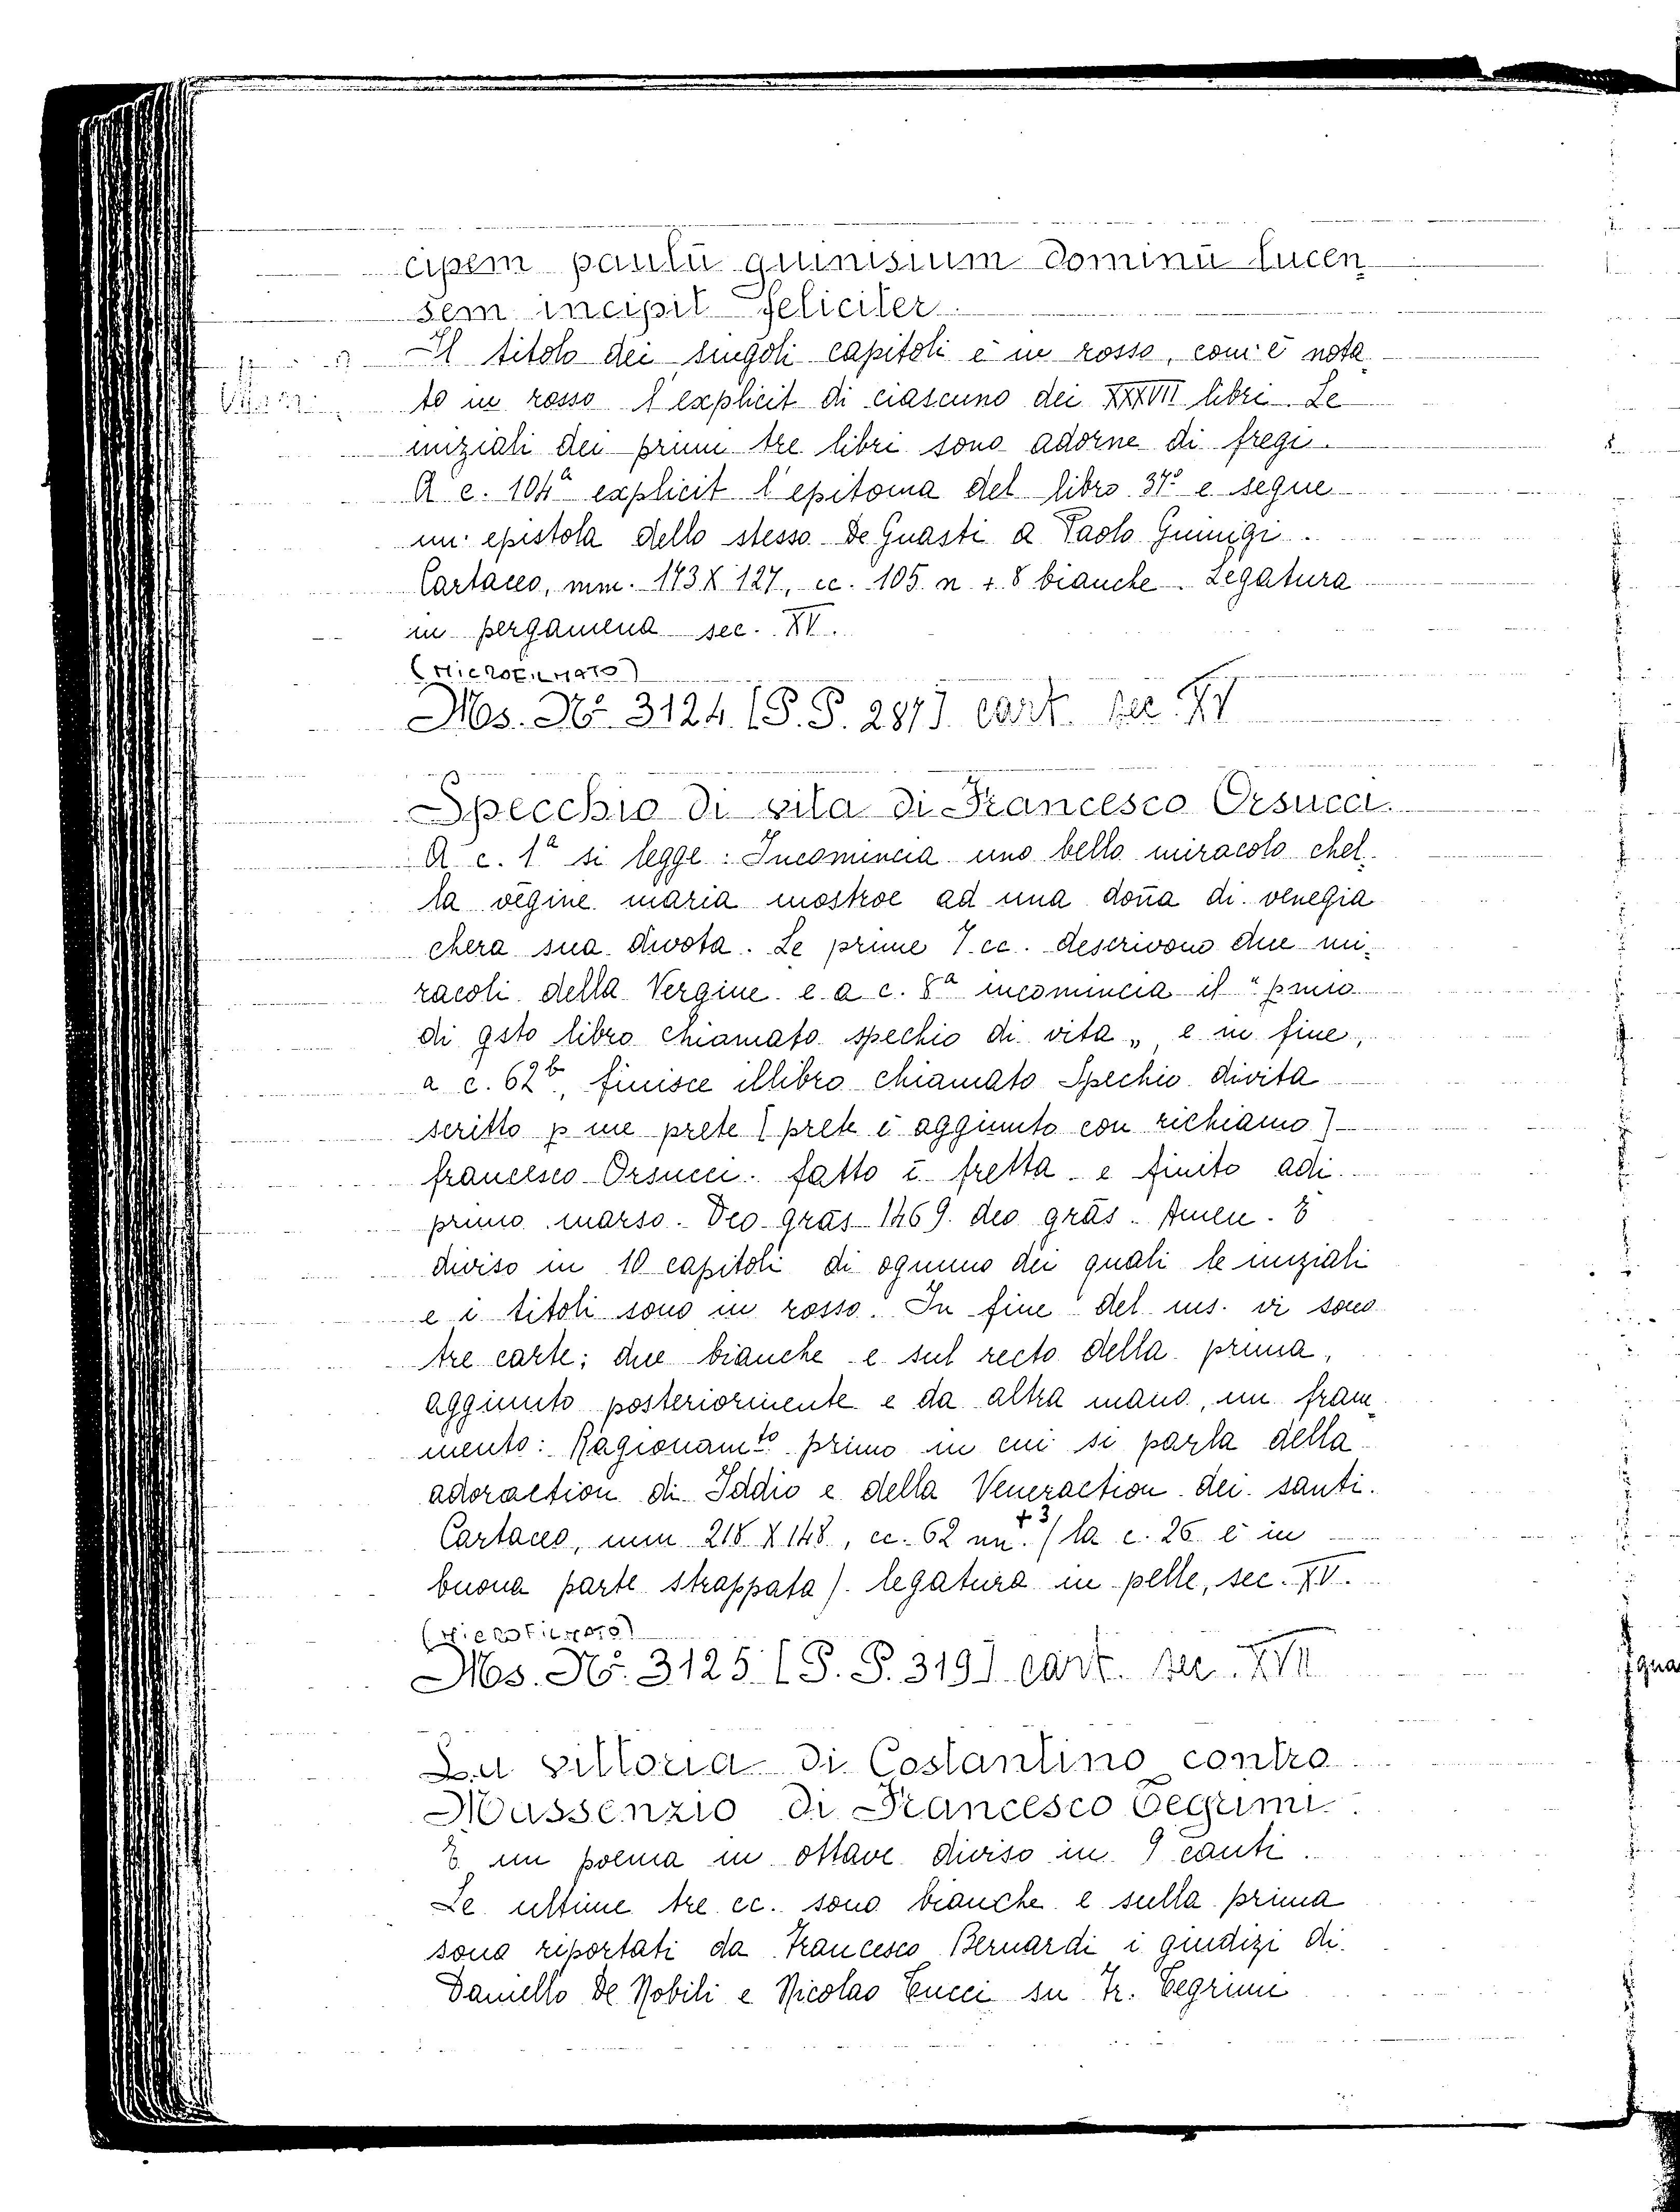 cipem paulū guinisium dominū lucen
sem incipit feliciter
Il titolo dei singoli capitoli è in rosso, com'è nota
to in rosso l'explicit di ciascuno dei XXXVII libri. Le
iniziali dei primi tre libri sono adorne di fregi.
A c. 104ª explicit l'epitoma del libro 37º e segue
un' epistola dello stesso De Guasti a Paolo Guinigi.
Cartaceo, mm. 173 X 127, cc. 105 n + 8 bianche. Legatura
in pergamena sec. XV.
(MICROFILMATO)
Ms. Nº 3124 [P. P. 287] cart. sec. XV
Specchio di vita di Francesco Orsucci.
A c. 1ª si legge: Incomincia uno bello miracolo chel-
la vēgine maria mostroe ad una doña di venegia
chera sua divota. Le prime 7 cc. descrivono due mi-
racoli della Vergine e a c. 8ª incomincia il "
di qsto libro chiamato spechio di vita „ e in fine,
a c. 62b, finisce illibro chiamato Spechio divita
scritto p me prete [prete è aggiunto con richiamo]
francesco Orsucci. fatto ī fretta e finito adi
primo marso. Deo grās 1469. deo grās. Amen. È
diviso in 10 capitoli di ognuno dei quali le iniziali
e i titoli sono in rosso. In fine del ms. vi sono
tre carte; due bianche e sul recto della prima,
aggiunto posteriormente e da altra mano, un fram-
mento: Ragionamto primo in cui si parla della
adoraction di Iddio e della Veneraction dei santi.
Cartaceo, mm 218 X 148, cc. 62 nn. +3 (la c. 26 è in
buona parte strappata). legatura in pelle, sec. XV.
(MICROFILMATO)
Ms. Nº. 3125 [P. P. 319] cart. sec. XVII
La vittoria di Costantino contro
Massenzio di Francesco Tegrimi.
È un poema in ottave diviso in 9 canti.
Le ultime tre cc. sono bianche e sulla prima
sono riportati da Francesco Bernardi i giudizi di
Daniello De Nobili e Nicolao Tucci su Fr. Tegrimi